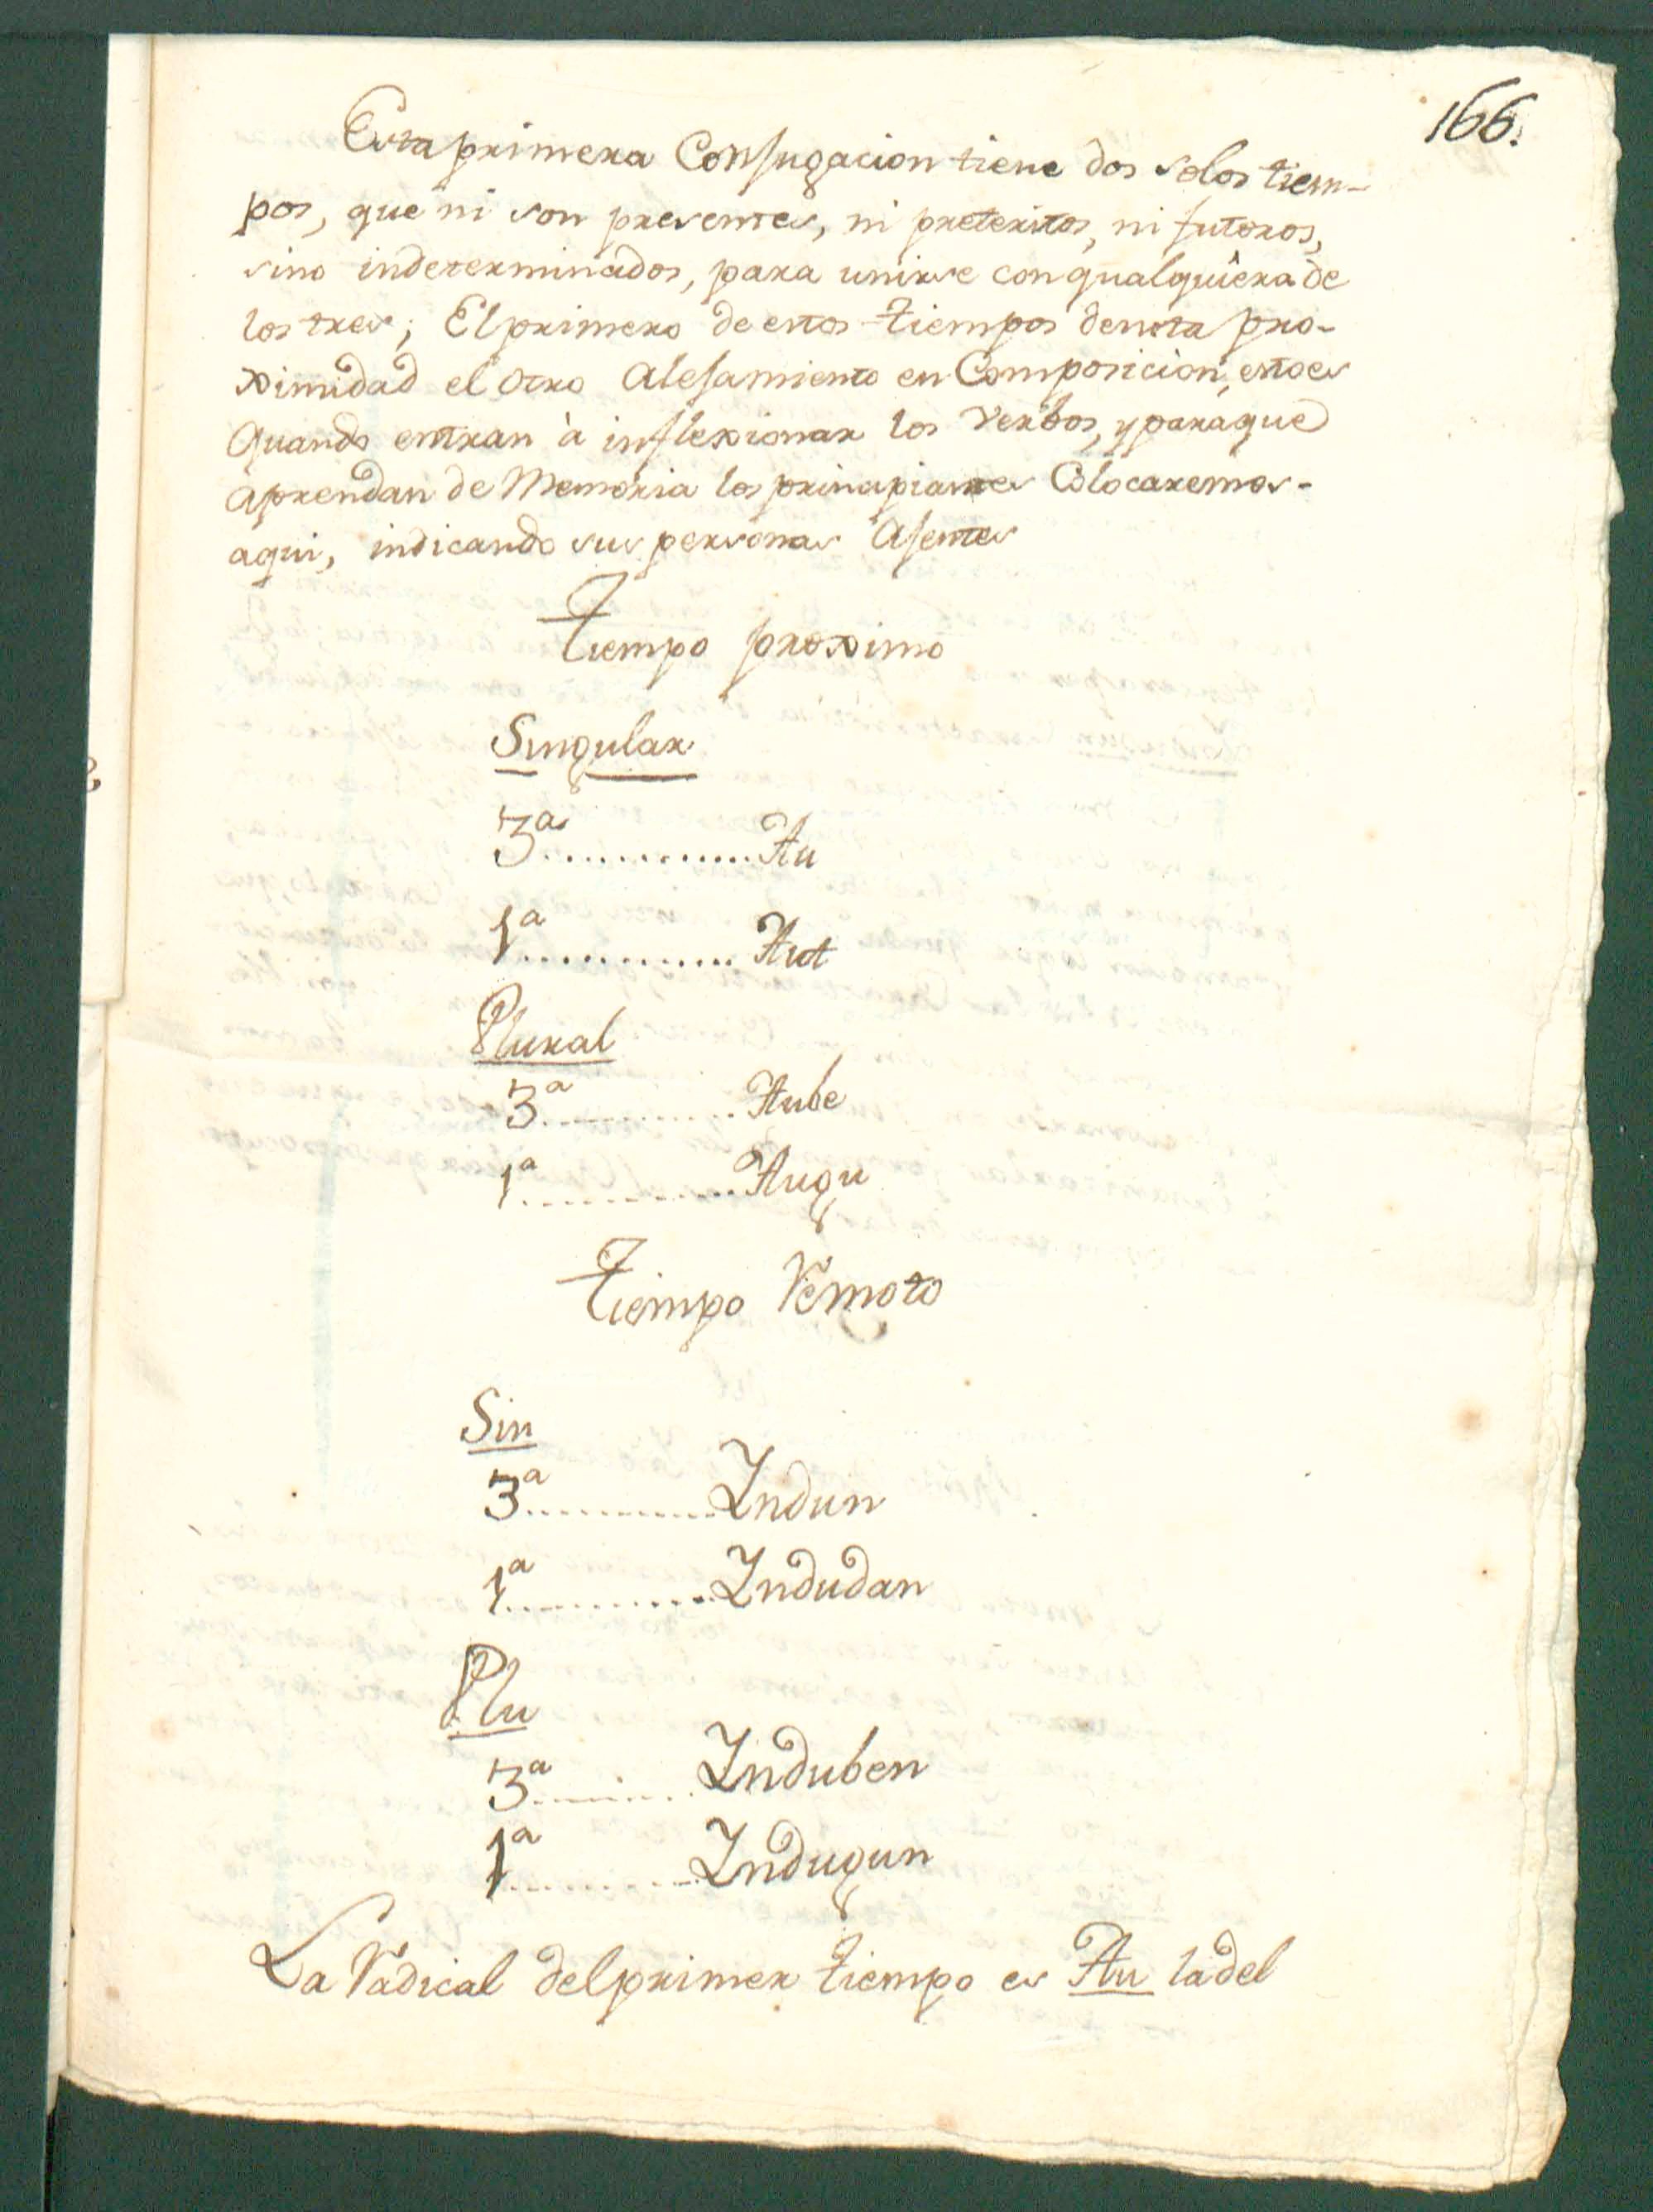 166.
Esta primera Conjugacion tiene dos solos tiem-
pos, que ni son presentes, ni preteritos, ni futoros,
sino indeterminados, para unirse con qualquiera de
los tres; El primero de estos tiempos denota pro-
ximidad el otro Alejamiento en Composicion, esto es
Quando entran à inflexionar los Verbos, y para que
aprendan de Memoria los principiantes Colocaremos-
aqui, indicando sus personas Ajentes
Tiempo proximo
Singular
3ª............. Au
1ª............. Aut
Plural
3ª............. Aube
1ª............. Augu
Tiempo Remoto
Sin
3ª............. Indun
1ª............. Indudan
Plu
3ª............. Induben
1ª............. Indugun
La Radical del primer tiempo es Au la del